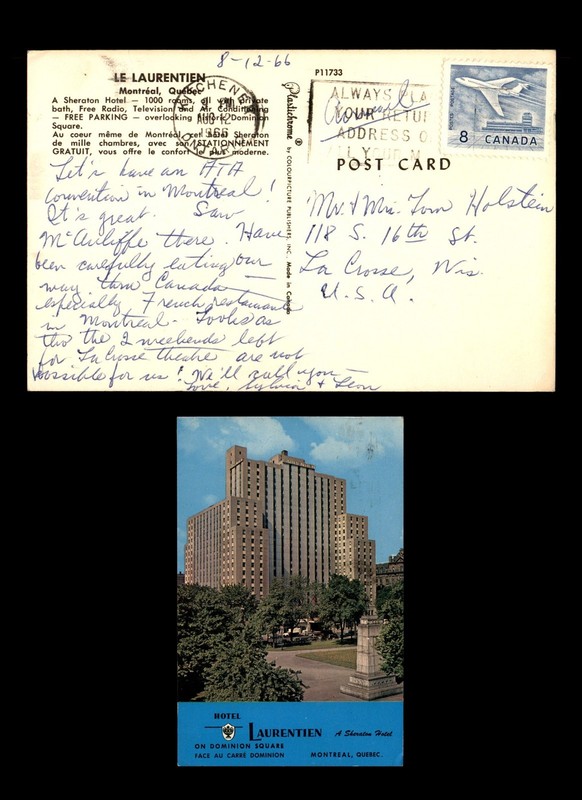 8-12-66
LE LAURENTIEN
Montréal, Québec
A Sheraton Hotel — 1000 rooms, all with private
bath, Free Radio, Television and Air Conditioning
— FREE PARKING — overlooking historic Dominion
Square.
Au coeur même de Montréal, cet hôtel Sheraton
de mille chambres, avec son STATIONNEMENT
GRATUIT, vous offre le confort le plus moderne.
Let's have an ATA
convention in Montreal!
It's great. Saw
McAuliffe there. Have
been carefully eating our
way thru Canada —
especially French restaurants
in Montreal. Looks as
tho the 2 weekends left
for LaCrosse theatre are not
possible for us! We'll call you —
Love, Sylvia + Leon
KITCHENER
AUG 12
1966
ONTARIO
Plastichrome ® by COLOURPICTURE PUBLISHERS, INC. Made in Canada
P11733
ALWAYS
YOUR RETU
ADDRESS O
POSTES POSTAGE
8 CANADA
POST CARD
Mr. & Mrs. Tom Holstein
118 S. 16th St.
La Crosse, Wis.
U.S.A.
HOTEL
LAURENTIEN A Sheraton Hotel
ON DOMINION SQUARE
FACE AU CARRÉ DOMINION MONTREAL, QUEBEC.